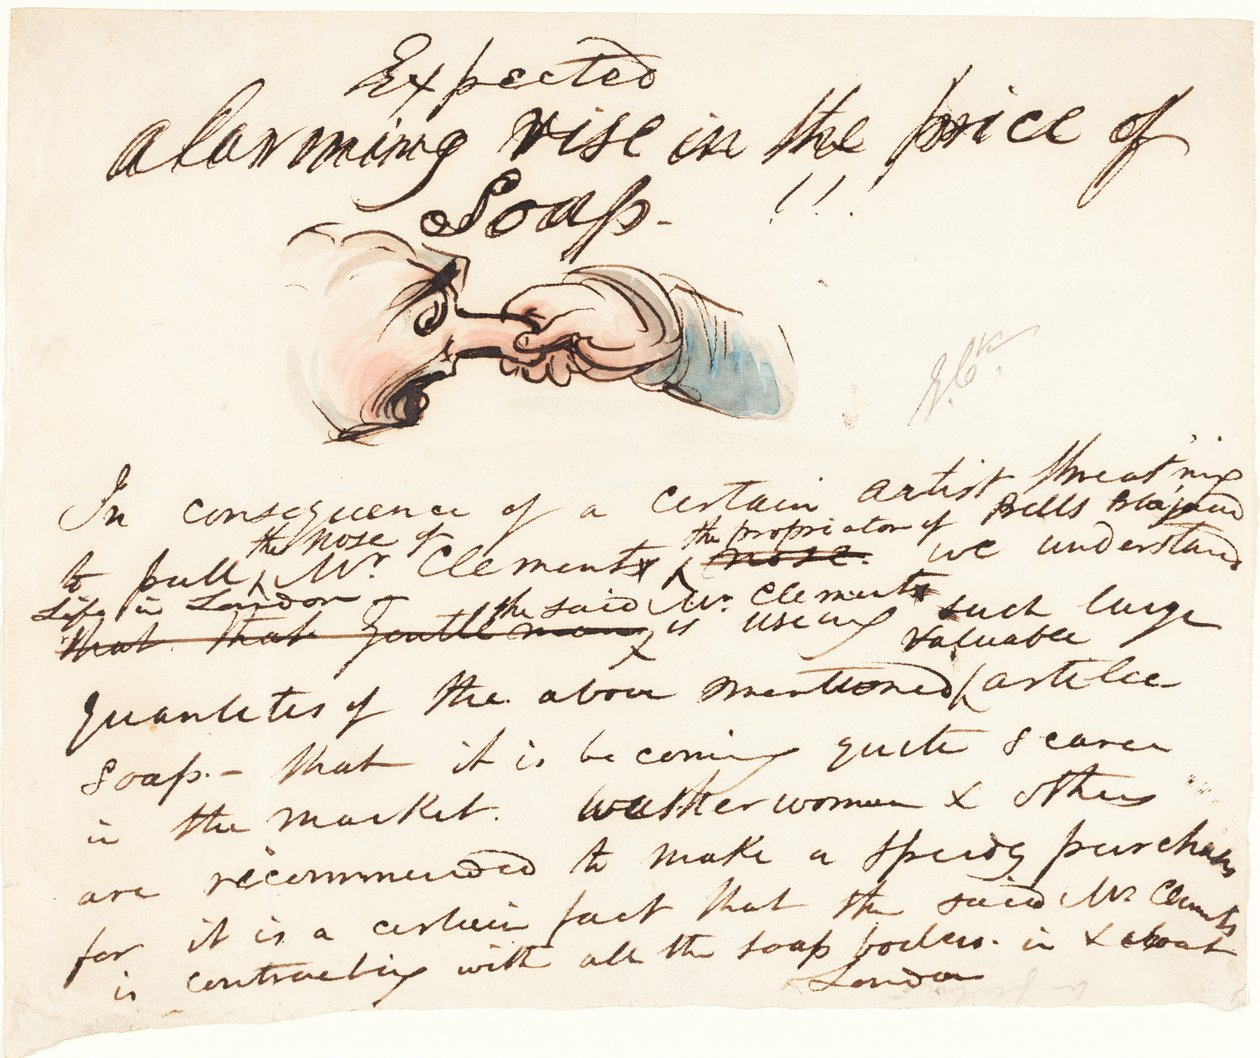 Expected
alarming rise in the price of
Soap - !!!
G. Ck.
In consequence of a certain artist threat'ning
to pull the nose of Mr Clements, the proprietor of nose. Bells
Life in London - that that Gentleman the said Mr. Clements is using such large
quantites of the above mentioned valuable article
Soap. - that it is becoming quite scarce
in the market. washerwomen & others
are recommended to make a speedy purchase
for it is a certain fact that the said Mr Clements
is contracting with all the soap boilers. in & about
London